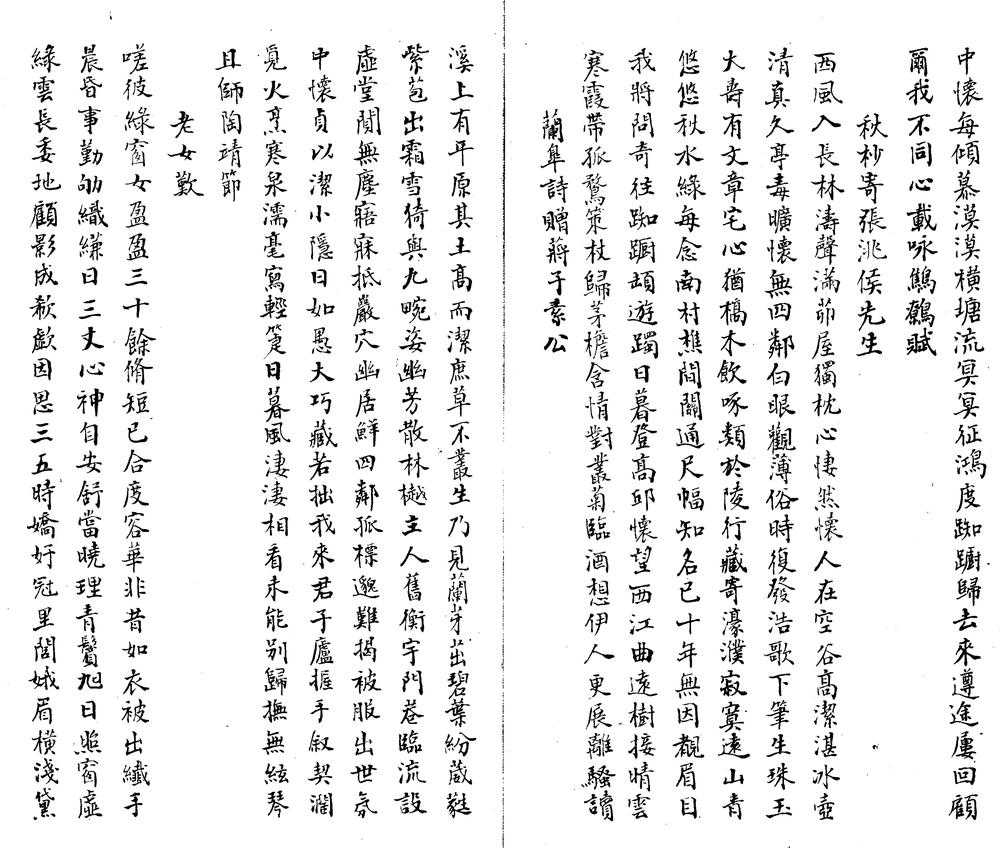 中懷每傾慕漠漠橫塘流冥冥征鴻度踟躕歸去來遵途屢回顧
爾我不同心載咏鷦鷯賦
秋杪寄張洮侯先生
西風入長林濤聲滿茆屋獨枕心悽然懷人在空谷高潔湛冰壺
清真久亭毒曠懷無四鄰白眼觀薄俗時復發浩歌下筆生珠玉
大壽有文章宅心猶槁木飲啄類於陵行藏寄濠濮寂寞遠山青
悠悠秋水綠每念南村樵間關通尺幅知名已十年無因覩眉目
我將問奇往踟躕頡遊躅日暮登高邱懷望西江曲遠樹接晴雲
寒霞帶孤鶩策杖歸茅檐含情對叢菊臨酒想伊人更展離騷讀
蘭臯詩贈蔣子素公
溪上有平原其土高而潔庶草不叢生乃見蘭芽茁碧葉紛葳蕤
紫苞出霜雪猗與九畹姿幽芳散林樾主人舊衡宇門巷臨流設
虛堂閴無塵寤寐抵巖穴幽居鮮四鄰孤標邈難揭被服出世氛
中懷貞以潔小隱曰如愚大巧藏若拙我來君子廬握手叙契濶
覓火烹寒泉濡毫寫輕箑日暮風淒淒相看未能别歸撫無絃琴
且師陶靖節
老女歎
嗟彼綠窗女盈盈三十餘脩短已合度容華非昔如衣被出纖手
晨昏事勤劬織縑日三丈心神自安舒當曉理青鬢旭日照窗虛
綠雲長委地顧影成欷歔因思三五時嬌好冠里閭娥眉橫淺黛